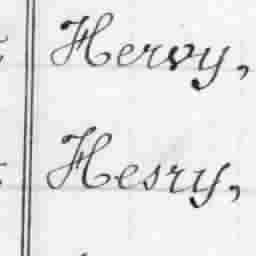 Hervy,
Hesry,